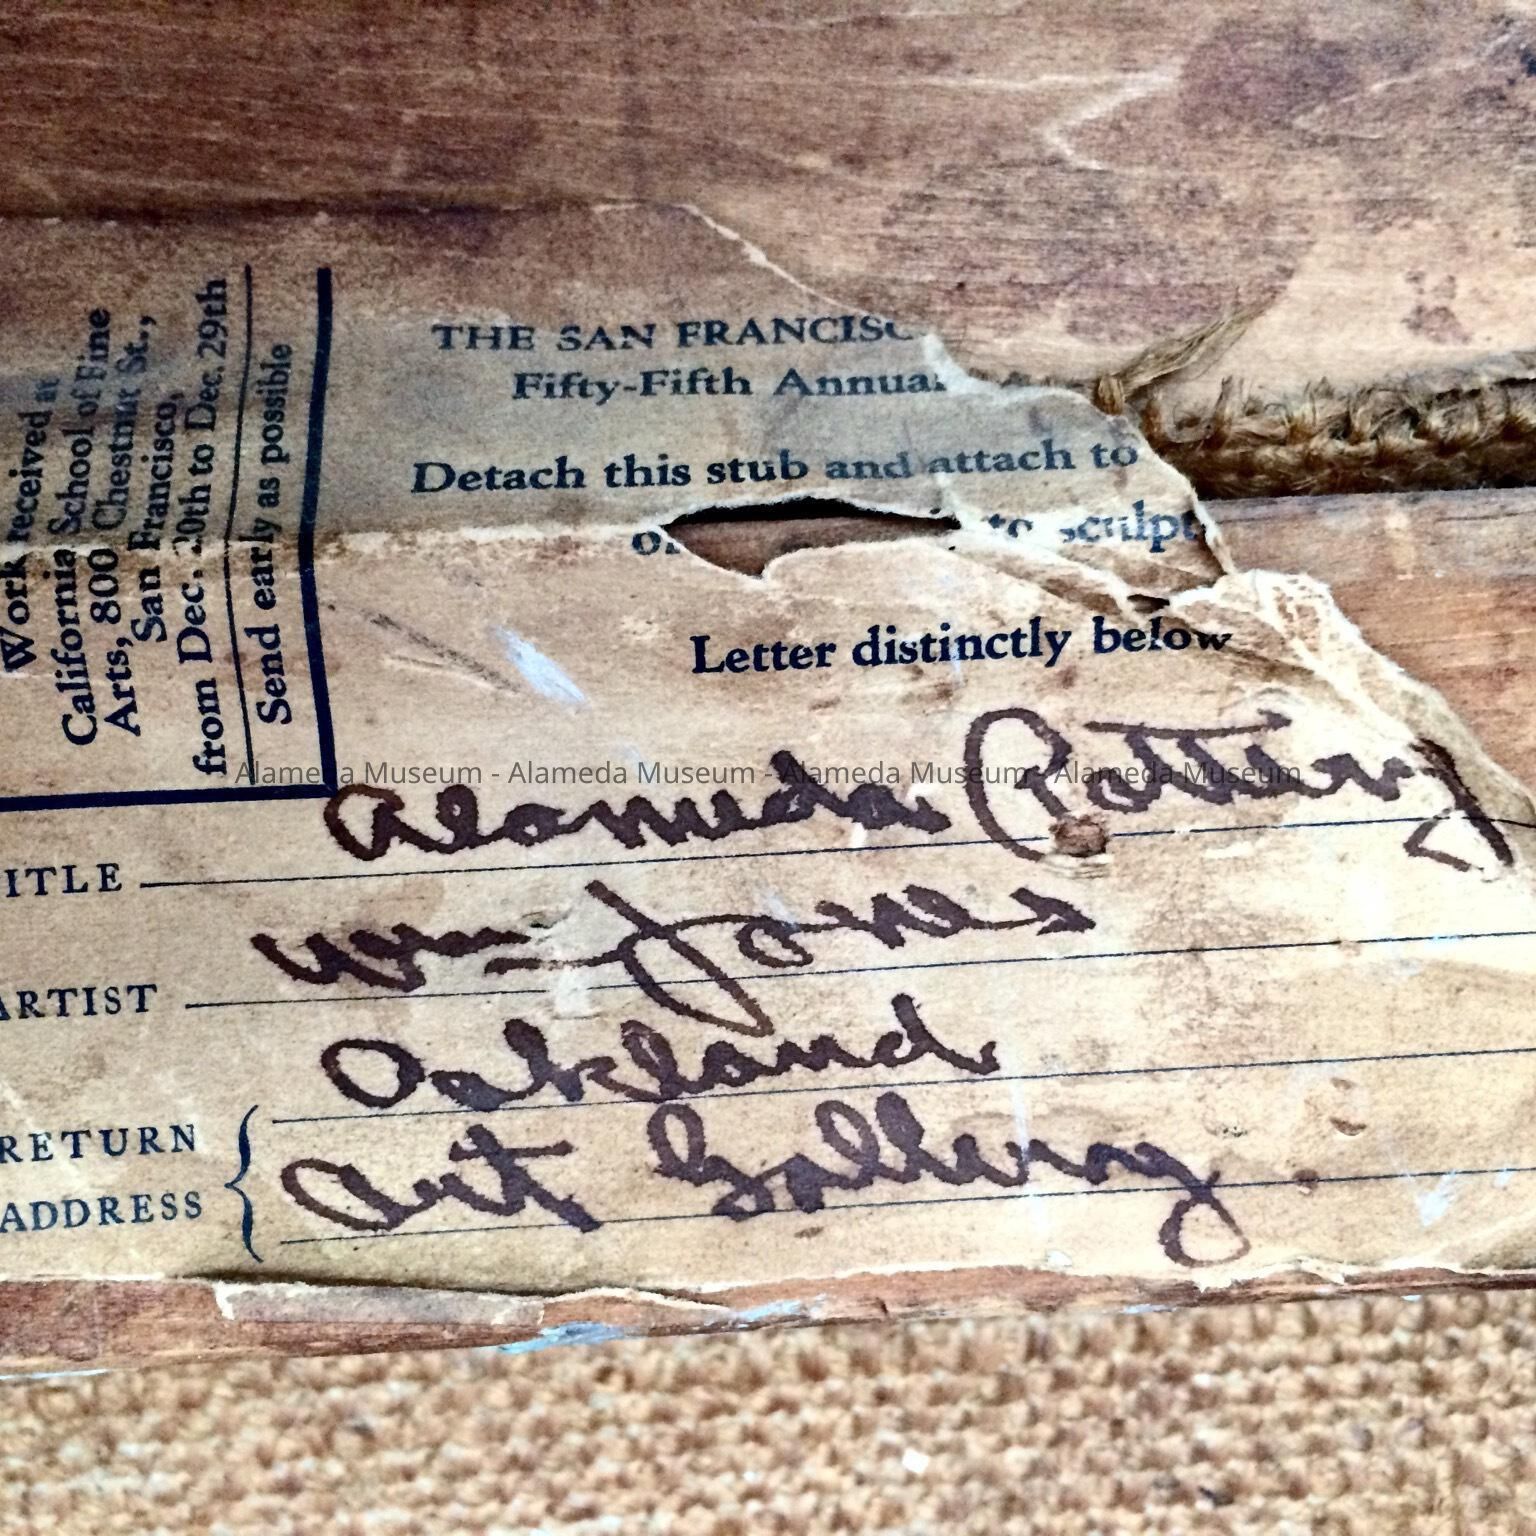 Work received at
California School of Fine
Arts, 800 Chestnut St.,
San Francisco,
from Dec. 20th to Dec. 29th
Send early as possible
THE SAN FRANCISC
Fifty-Fifth Annual
Detach this stub and attach to
to sculpt
Letter distinctly below
Alameda Museum - Alameda Museum - Alameda Museum - Alameda Museum
ITLE Alameda Pottery
ARTIST Wm Jones
RETURN ADDRESS Oakland
Art Gallery